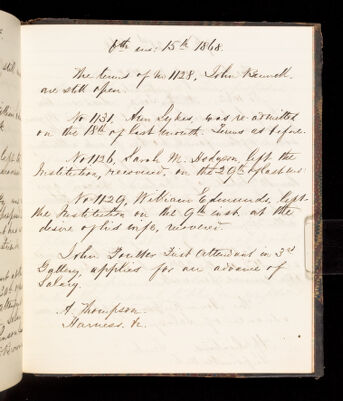 15th 1868.
The terms of No 1128, John
are still open.
No 1131, Ann Sykes, was re-admitted
on the 18th of last month. Terms as before.
No 1126, Sarah M. Hodgson, left the
Institution, recovered, on the 29th of last
No 1129, William Edmunds, left
the Institution on the 9th inst. at the
desire of his wife,
John First Attendant in 3rd
Gallery, applies for an advance of
Salary.
A. Thompson.
Harness. &c.